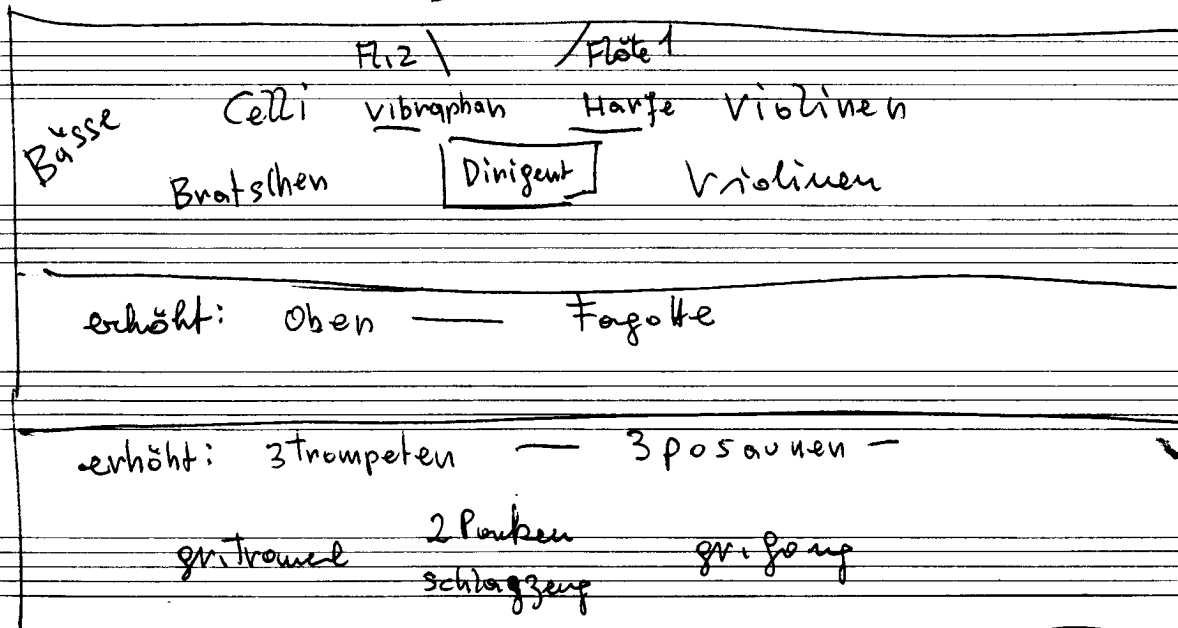 Fl.2 \ / Flöte 1
Bässe Celli Vibraphon Harfe Violinen
Bratschen Dirigent Violinen
erhöht: Oben — Fagotte
erhöht: 3 Trompeten — 3 Posaunen —
gr. Tromel 2 Pauken gr. Gong
Schlagzeug